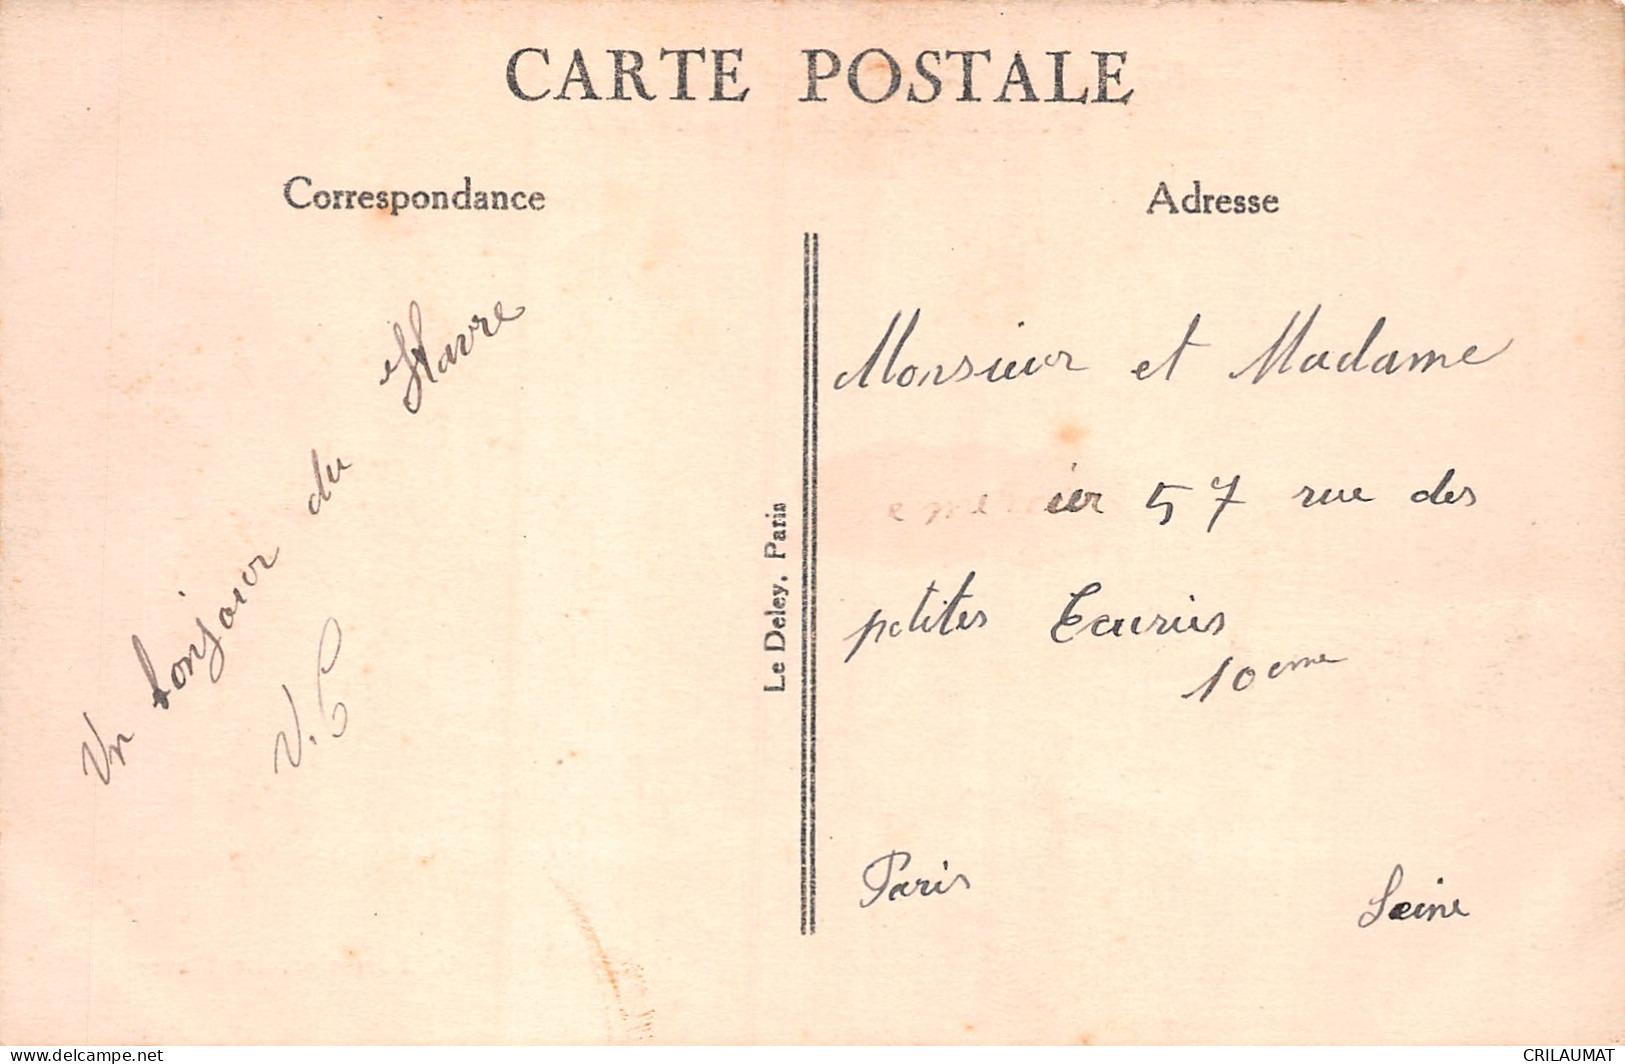 CARTE POSTALE
Correspondance
Adresse
Un bonjour du Havre
V.C
Le Deley, Paris
Monsieur et Madame
ier 57 rue des
petites Ecuries
10eme
Paris Seine
www.delcampe.net
CRILAUMAT